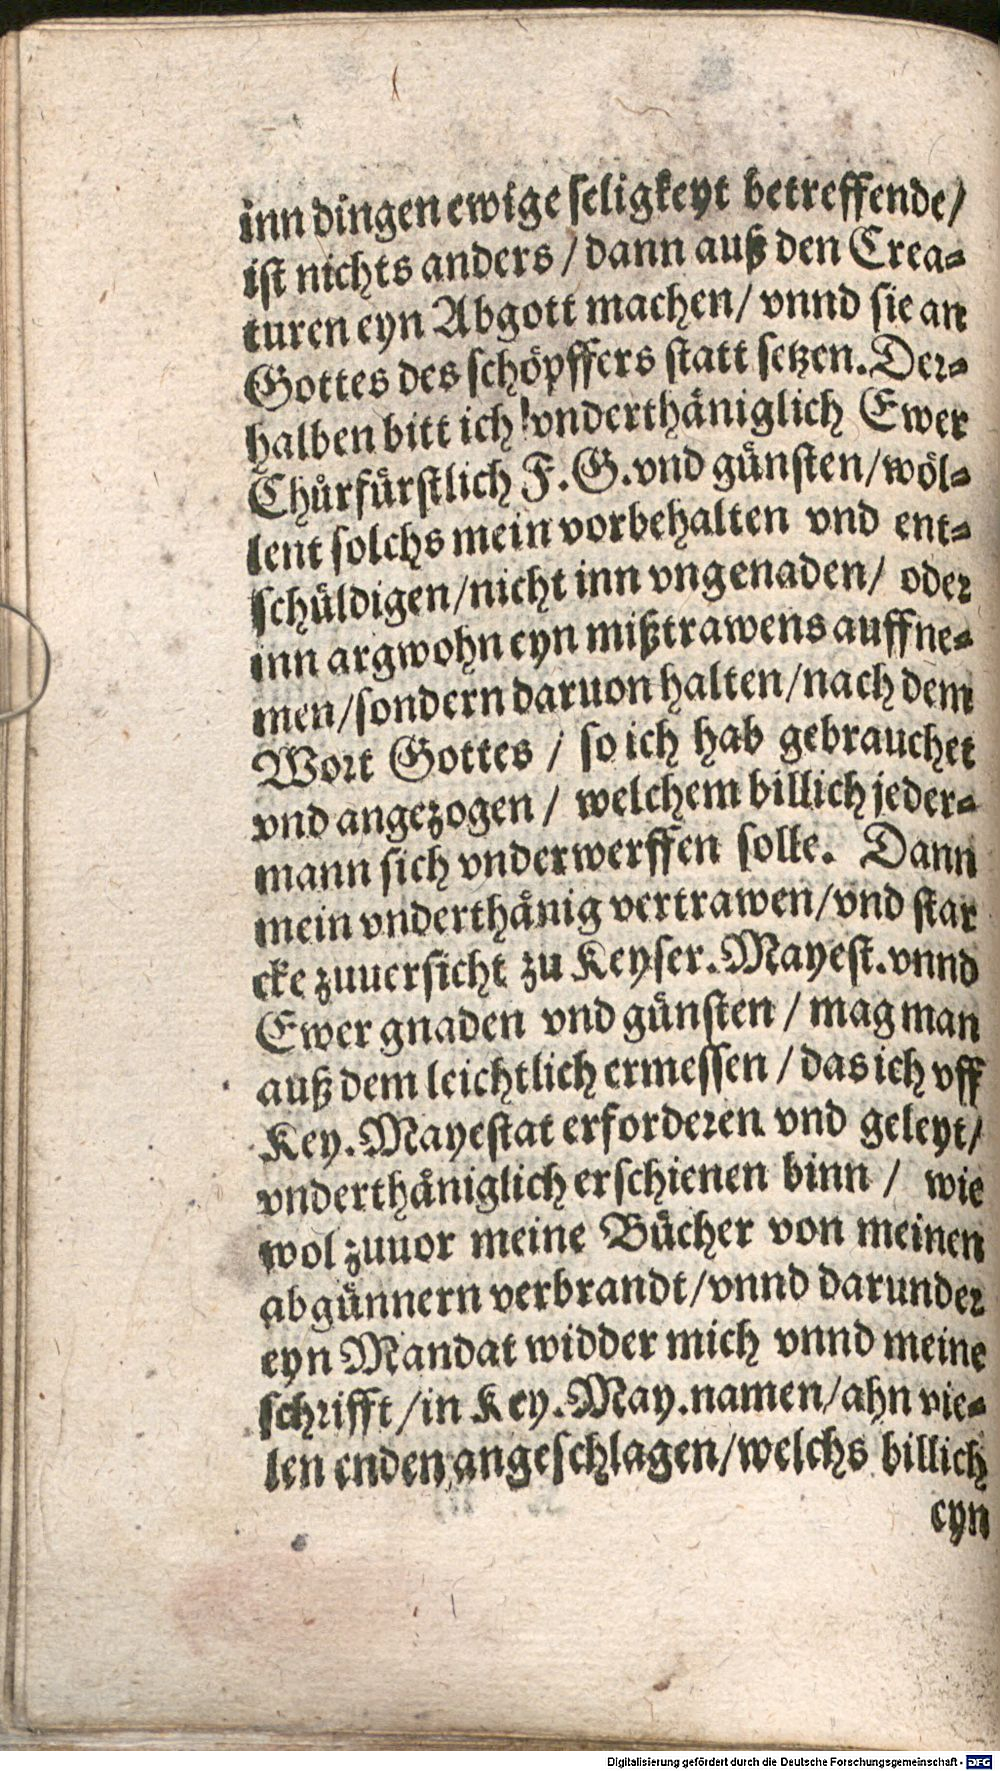 inn dingen ewige seligkeyt betreffende/
ist nichts anders / dann auß den Crea-
turen eyn Abgott machen/ vnnd sie an
Gottes des schöpffers statt setzen. Der-
halben bitt ich vnderthäniglich Ewer
Chůrfürstlich F. G. vnd günsten/wöl-
lent solchs mein vorbehalten vnd ent-
schüldigen/nicht inn vngenaden/ oder
inn argwohn eyn mißtrawens auffne-
men/sondern daruon halten/nach dem
Wort Gottes / so ich hab gebrauchet
vnd angezogen / welchem billich jeder-
mann sich vnderwerffen solle. Dann
mein vnderthånig vertrawen/vnd star
cke zuuersicht zu Keyser. Mayest. vnnd
Ewer gnaden vnd günsten / mag man
auß dem leichtlich ermessen / das ich vff
Key. Mayestat erforderen vnd geleyt/
vnderthåniglich erschienen binn / wie
wol zuuor meine Bücher von meinen
abgünnern verbrandt/vnnd darunder
eyn Mandat widder mich vnnd meine
schrifft/in Key. May. namen/ahn vie-
len enden angeschlagen/welchs billich
eyn
Digitalisierung gefördert durch die Deutsche Forschungsgemeinschaft - DFG